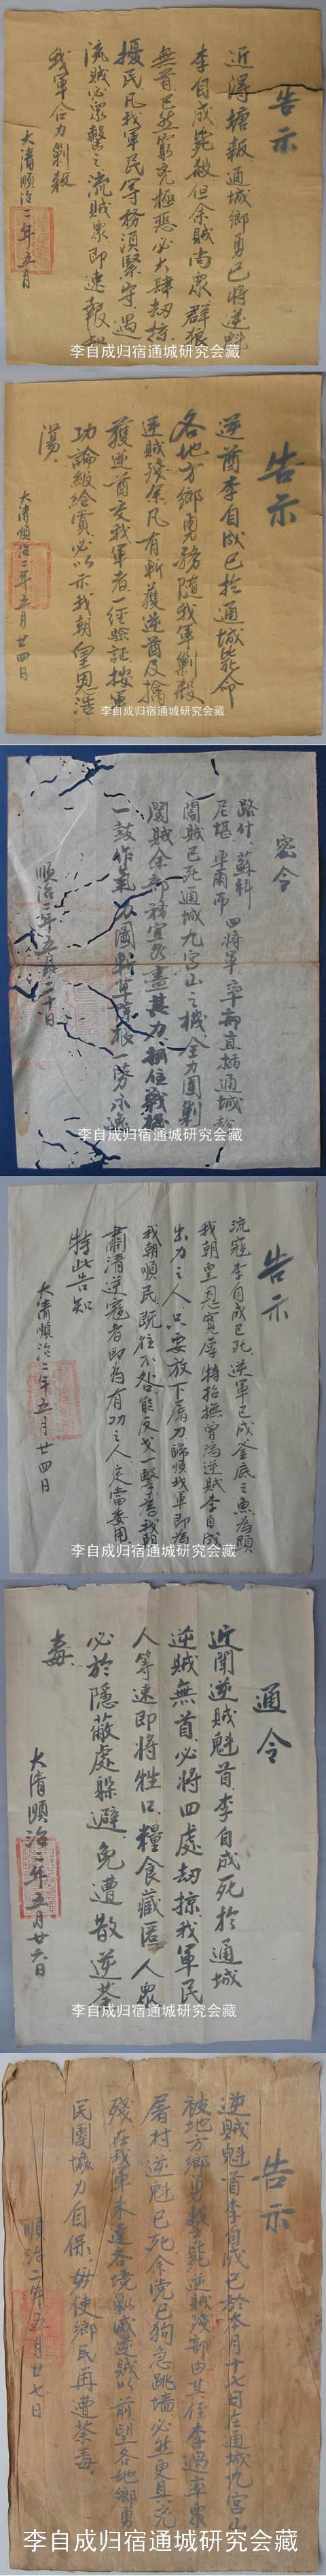 告示
近得塘報通城鄉勇已將逆魁
李自成斃殺但余賊尚衆群狼
無首已然窮兇極惡必大肆劫掠
擾民凡我軍民等務須緊守遇
流賊必衆擊之流賊衆即速報知
我軍合力剿殺
大清順治二年五月
李自成归宿通城研究会藏
告示
逆酋李自成已於通城斃命
各地方鄉勇務隨我軍剿殺
逆賊殘余凡有斬獲逆首及擒
獲逆酋交我軍者一經驗証按軍
功論級給賞必以示我朝皇恩浩
蕩
大清順治二年五月廿四日
李自成归宿通城研究会藏
密令
路什 蘇科
尼堪 車爾布 四將軍率部直插通城於
闖賊已死通城九宮山之機全力圍剿
闖賊余部務宜各盡其力抓住戰機
一鼓作氣 圍斬草除根一勞永逸
順治二年五月二十日
李自成归宿通城研究会藏
告示
流寇李自成已死逆軍已成釜底之魚為顯
我朝皇恩寬厚特招撫曾為逆賊李自成
出力之人只要放下屠刀歸順我軍即為
我朝順民既往不咎能反戈一擊為我朝
肅清逆寇者即為有功之人定當委用
特此告知
大清順治二年五月廿四日
李自成归宿通城研究会藏
通令
近聞逆賊魁首李自成死於通城
逆賊無首必將四處劫掠我軍民
人等速即將牲口糧食藏匿人衆
必於隱蔽處躲避免遭散逆荼
毒
大清順治二年五月廿六日
李自成归宿通城研究会藏
告示
逆賊魁首李自成已於本月十七日在通城九宮山
被地方鄉勇擊斃逆賊殘部由其侄李過率衆
屠村逆魁已死余党已狗急跳墙必然更具兇
殘在我軍未達各境剿滅逆賊以前望各地鄉勇
民團協力自保毋使鄉民再遭荼毒
順治二年五月廿七日
李自成归宿通城研究会藏